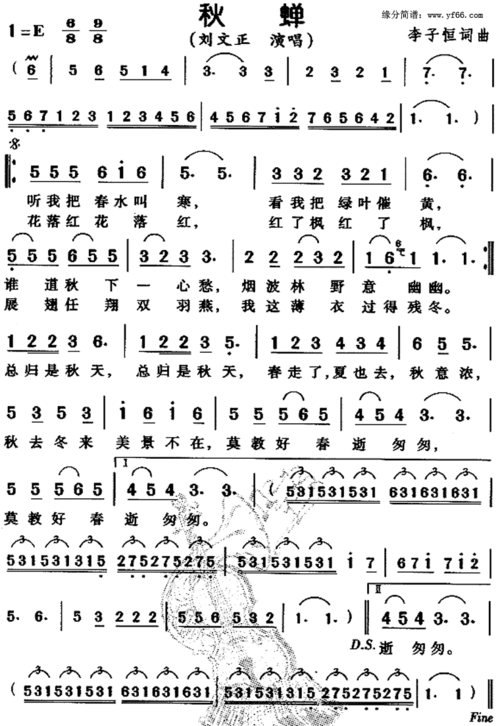 缘分简谱：www.yf66.com
秋 蝉
1=E 6/8 9/8
(刘文正 演唱)
李子恒词曲
( 6 | 5 6 5 1 4 | 3. 3 3 | 2 3 2 1 | 7. 7. |
5 6 7 1 2 3 | 1 2 3 4 5 6 7 | 2 3 4 5 6 7 1 6 | 4 5 6 7 1 2 | 7 6 5 6 4 2 | 1. 1. ) |
5 5 5 6 1 6 | 5. 5. | 3 3 2 3 2 1 | 6. 6. |
听我把 春水叫 寒， 看我把 绿叶催 黄，
花落红 花 落 红， 红了枫 红 了 枫，
5 5 5 5 6 5 5 | 3 2 3 3. | 2 2 2 3 5 2 | 1 6 1. |
谁 道秋 下 一 心愁， 烟波林 野意 幽幽。
展 翅任 翔 双 羽燕， 我这薄 衣 过得 残冬。
1 2 2 3 6. | 1 2 2 3 3. | 1 2 3 4 3 4 | 6 5 5. |
总归是 秋天， 总归是 秋天， 春走了，夏也去， 秋意浓，
5 3 5 3. | 1 6 1 6 | 5 5 5 6 5 | 4 5 4 3. 3. |
秋 去冬 来 美 景 不在， 莫教好 春 逝 匆匆，
I
5 5 5 6 5 | 4 5 4 3. 3. | ( 531531531 631631631 |
莫教好 春 逝 匆匆。
531531315 275275275 | 531531531 1 7 | 6 7 1 7 1 2 |
5. 6. | 5 3 2 2 2 | 5 5 6 5 3 2 | 1. 1. ) | 4 5 4 3. 3. |
II
D.S. 逝 匆匆。
( 531531531 631631631 | 531531315 275275275 | 1. 1. ) ‖
Fine